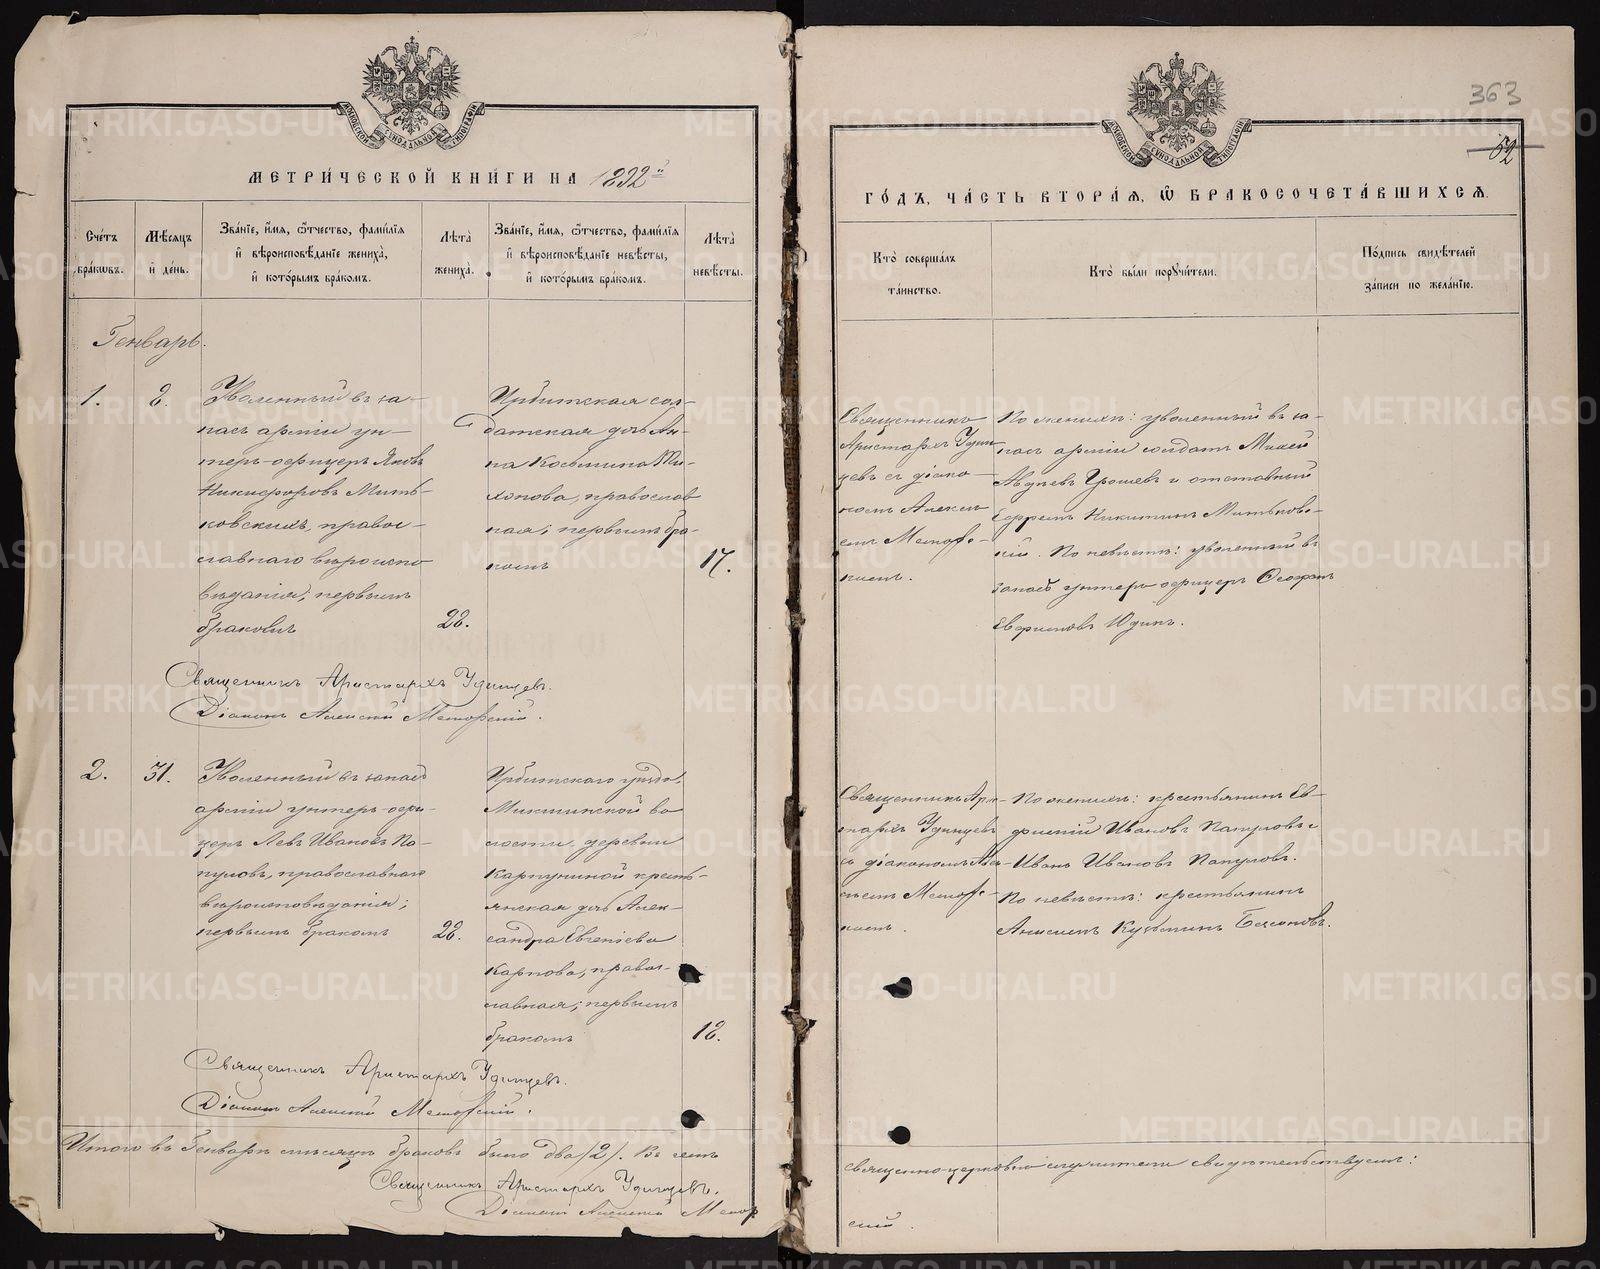 МЕТРИ́ЧЕСКОЙ КНИ́ГИ НА 1892й
Сче́тъ бра́ковъ.
Мѣ́сяцъ и҆ де́нь.
Зва́нїе, и҆́мя, ѻ҆́тчество, фами́лїя и҆ вѣроисповѣ́данїе жениха̀, и҆ кото́рымъ бра́комъ.
Лѣта̀ жениха̀.
Зва́нїе, и҆́мя, ѻ҆́тчество, фами́лїя и҆ вѣроисповѣ́данїе невѣ́сты, и҆ кото́рымъ бра́комъ.
Лѣта̀ невѣ́сты.
Генварь.
1.
8.
Уволенный въ за-
пасъ арміи ун-
теръ-офицеръ Яковъ
Никифоровъ Мить-
ковскихъ, правос-
славнаго вѣроиспо
вѣданія; первымъ
бракомъ
28.
Ирбитская сол-
датская дочь Ан-
на Косьмина Ти-
хонова, православ
ная; первымъ бра-
комъ
17.
Священникъ Аристархъ Удинцевъ.
Діаконъ Алексій Меморскій.
2.
31.
Уволенный въ запасъ
арміи унтеръ-офи-
церъ Левъ Ивановъ Па-
пуловъ, православнаго
вѣроисповѣданія;
первымъ бракомъ
28.
Ирбитскаго уѣзда,
Микшинской во
лости, деревни
Карпуниной кресть-
янская дочь Алек-
сандра Евгеніева
Карпова, правос-
лавная; первымъ
бракомъ
18.
Священникъ Аристархъ Удинцевъ.
Діаконъ Алексій Меморскій.
Итого въ Генварѣ мѣсяцѣ браковъ было два (2). Въ чемъ
Священникъ Аристархъ Удинцевъ.
Діаконъ Алексій Мемор
363
62
ГО́ДЪ, ЧА́СТЬ ВТОРА́Я, Ѽ БРАКОСОЧЕТА́ВШИХСЯ.
Кто̀ соверша́лъ та́инство.
Кто̀ бы́ли порꙋчи́тели.
По́дпись свидѣ́телей за́писи по жела́нїю.
Священникъ
Аристархъ Удин
цевъ съ діако-
номъ Алексѣ-
емъ Меморс-
кимъ.
По женихѣ: уволенный въ за-
пасъ арміи солдатъ Михей
Авдѣевъ Грошевъ и отставной
Ефремъ Никитинъ Митьковс-
кій. По невѣстѣ: уволенный въ
запасъ унтеръ офицеръ Феофанъ
Евфимовъ Юдинъ.
Священникъ Арис-
тархъ Удинцевъ
съ діакономъ Але-
ксѣемъ Меморс-
кимъ.
По женихѣ: крестьянинъ Ев-
фимій Ивановъ Папуловъ и
Иванъ Ивановъ Папуловъ.
По невѣстѣ: крестьянинъ
Анисимъ Кузьминъ Бессоновъ.
священно-церковно-служители свидѣтельствуемъ:
скій.
METRIKI.GASO-URAL.RU